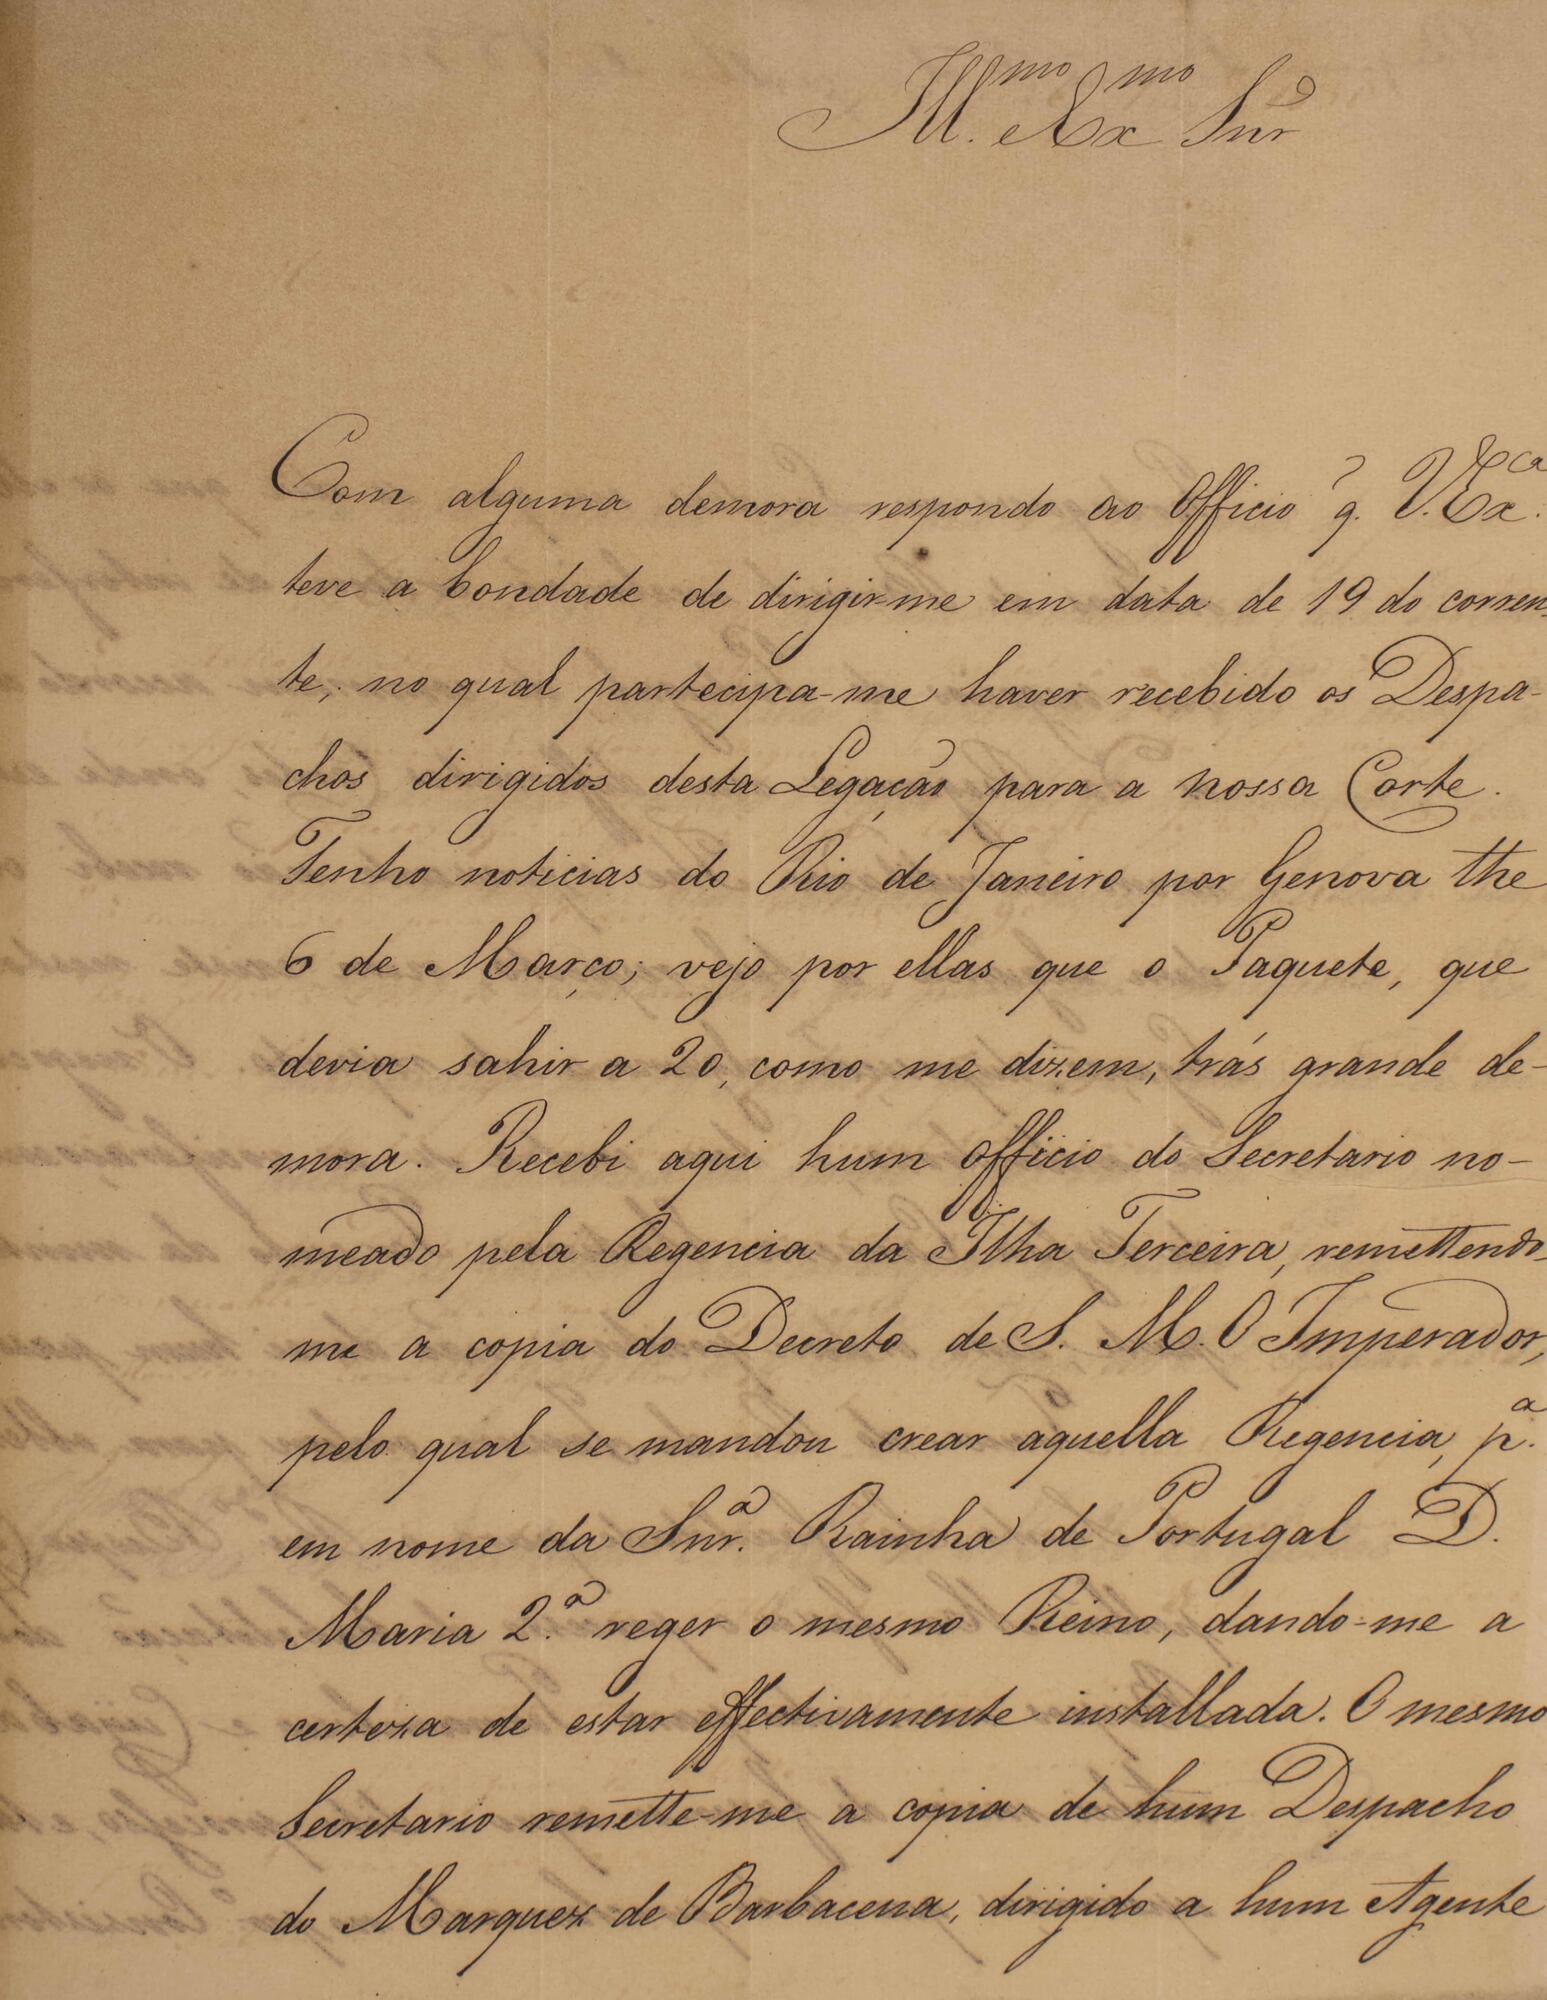 Ill.mo Ex.mo Snr
Com alguma demora respondo ao Officio q̃. V. Ex.ca
teve a bondade de dirigir-me em data de 19 do corren-
te, no qual partecipa-me haver recebido os Despa-
chos dirigidos desta Legação para a nossa Corte.
Tenho noticias do Rio de Janeiro por Genova the
6 de Março; vejo por ellas que o Paquete, que
devia sahir a 20, como me dizem, trás grande de-
mora. Recebi aqui hum officio do Secretario no-
meado pela Regencia da Ilha Terceira, remettendo-
me a copia do Decreto de S. M. O Imperador,
pelo qual se mandou crear aquella Regencia, p.a
em nome da Snr.a Rainha de Portugal D.
Maria 2.a reger o mesmo Reino, dando-me a
certeza de estar effectivamente installada. O mesmo
Secretario remette-me a copia de hum Despacho
do Marquez de Barbacena, dirigido a hum Agente